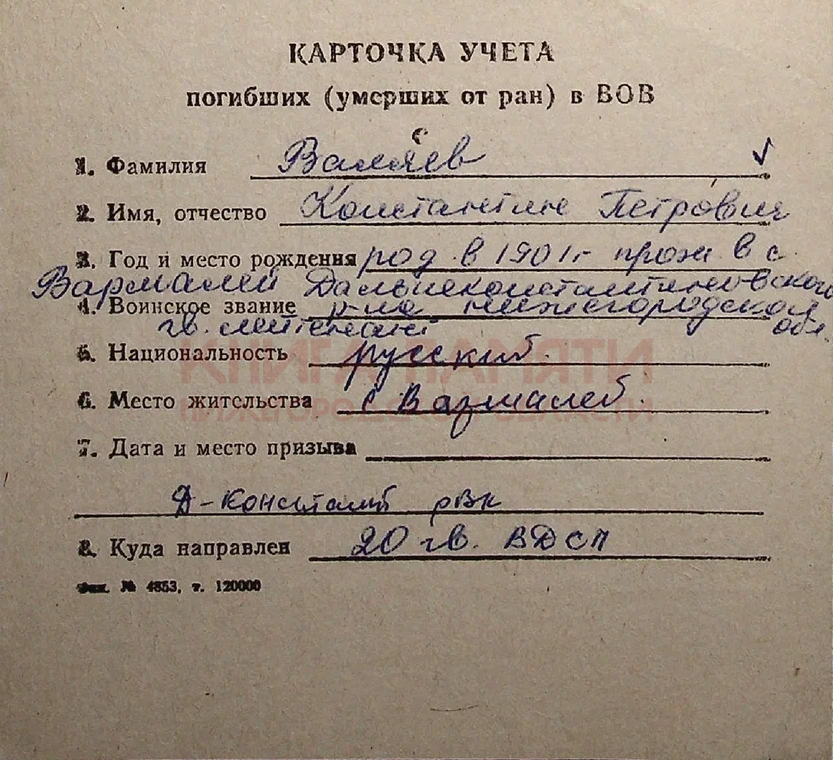 КАРТОЧКА УЧЕТА
погибших (умерших от ран) в ВОВ
с
1. Фамилия Валяев ✓
2. Имя, отчество Константин Петрович
3. Год и место рождения род в 1901г прож в с.
Вармалей Дальнеконстантиновского
4. Воинское звание р-на Нижегородской
гв. лейтенант обл.
5. Национальность русский.
КНИГА ПАМЯТИ
6. Место жительства с Вармалей.
НИЖЕГОРОДСКОЙ ОБЛАСТИ
7. Дата и место призыва
Д-Констант рвк
8. Куда направлен 20 гв. ВДСП
Зак. № 4853, т. 120000